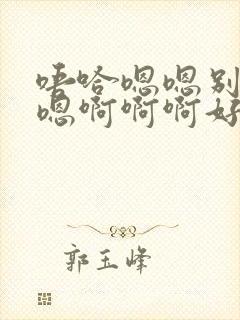 唔哈嗯嗯别
嗯啊啊啊好
郭玉峰